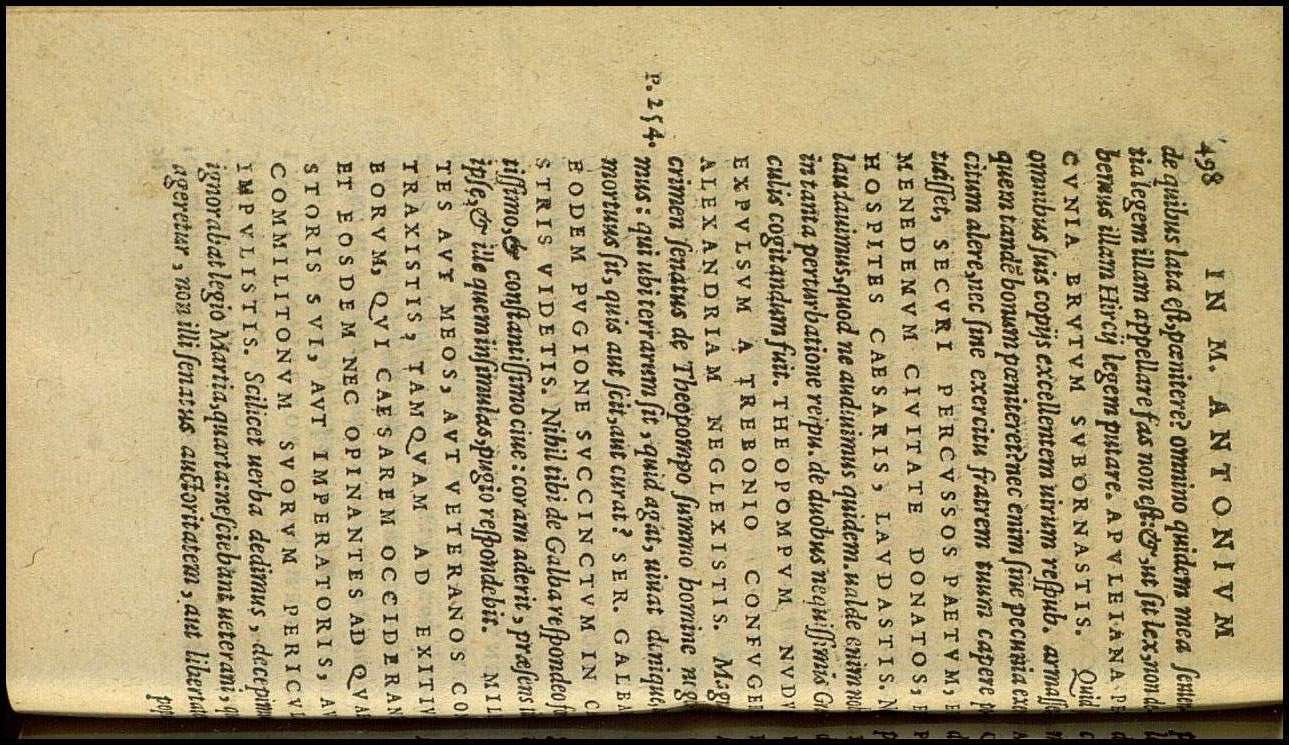 498 IN M. ANTONIVM
de quibus lata est, pœnitere? omnino quidem mea senten
tia legem illam appellare fas non est: &, ut sit lex, non de
bemus illam Hircij legem putare. APVLEIANA PE
CVNIA BRVTVM SVBORNASTIS. Quid
omnibus suis copijs excellentem uirum respub. armasse
quem tandẽ bonum pœniteret? nec enim sine pecunia exer
citum alere, nec sine exercitu fratrem tuum capere po
tuisset, SECVRI PERCVSSOS PAETVM, E
MENEDEMVM CIVITATE DONATOS, E
HOSPITES CAESARIS, LAVDASTIS. N
laudauimus, quod ne audiuimus quidem. ualde enim nob
in tanta perturbatione reipu. de duobus nequissimis Gr
culis cogitandum fuit. THEOPOMPVM NVDV
EXPVLSVM A TREBONIO CONFVGER
ALEXANDRIAM NEGLEXISTIS. M
crimen senatus de Theopompo summo homine neg
P. 254. mus: qui ubi terrarum sit, quid agat, uiuat denique,
mortuus sit, quis aut scit, aut curat? SER. GALBA
EODEM PVGIONE SVCCINCTVM IN C
STRIS VIDETIS. Nihil tibi de Galba respondeo fo
tissimo, & constantissimo ciue: coram aderit, præsens
ipse, & ille quem insimulas, pugio respondebit. MIL
TES AVT MEOS, AVT VETERANOS CON
TRAXISTIS, TAMQVAM AD EXITIV
EORVM, QVI CAESAREM OCCIDERAN
ET EOSDEM NEC OPINANTES AD QVAE
STORIS SVI, AVT IMPERATORIS, AV
COMMILITONVM SVORVM PERICVL
IMPVLISTIS. Scilicet uerba dedimus, decepimu
ignorabat legio Martia, quarta: nesciebant ueterani, q
ageretur, non illi senatus auctoritatem, aut libertat
pop